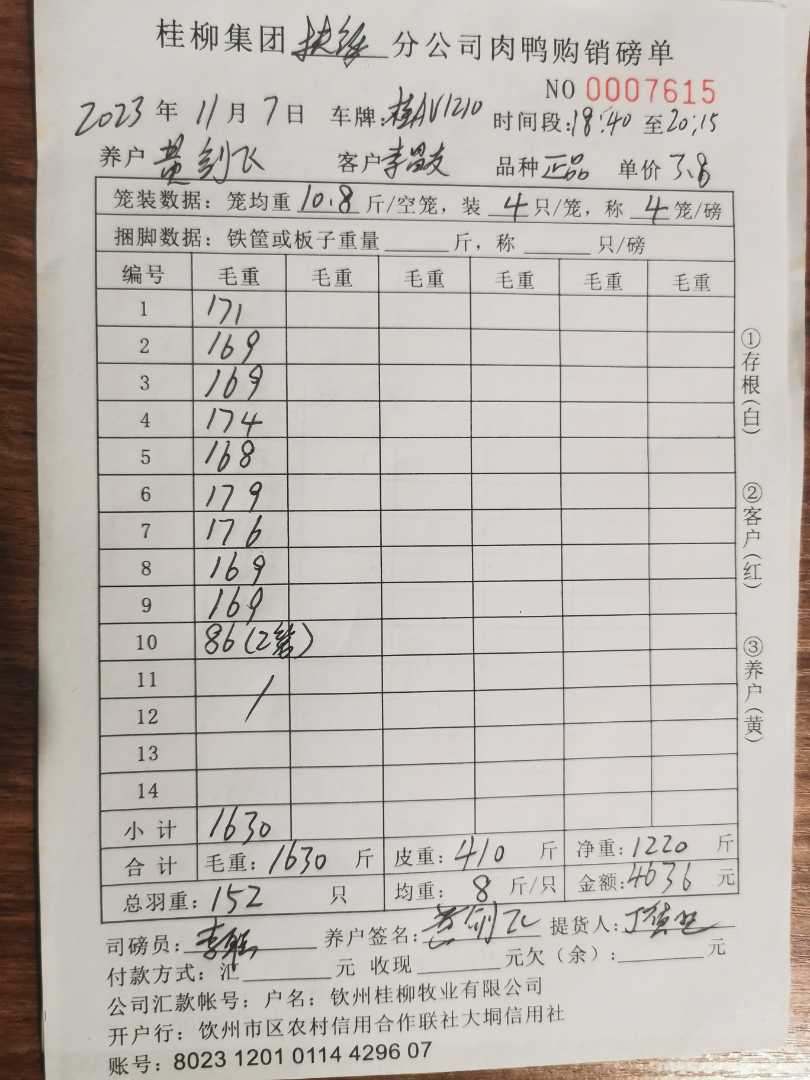 桂柳集团扶绥分公司肉鸭购销磅单
NO 0007615
2023年 11月 7日 车牌:桂AV1210 时间段:18:40 至20:15
养户 黄剑飞 客户李昌友 品种 正品 单价 3.8
笼装数据：笼均重 10.8 斤/空笼，装 4 只/笼，称 4 笼/磅
捆脚数据：铁筐或板子重量 斤，称 只/磅
编号 毛重 毛重 毛重 毛重 毛重 毛重
1 171
2 169
3 169
4 174
5 168
6 179
7 176
8 169
9 169
10 86(2笼)
11
12 /
13
14
小计 1630
合计 毛重：1630 斤 皮重：410 斤 净重：1220 斤
总羽重：152 只 均重：8 斤/只 金额:4636 元
司磅员：李 养户签名：黄剑飞 提货人：
付款方式：汇 元 收现 元欠（余）： 元
公司汇款帐号：户名：钦州桂柳牧业有限公司
开户行：钦州市区农村信用合作联社大垌信用社
账号：8023 1201 0114 4296 07
①存根(白)
②客户(红)
③养户(黄)